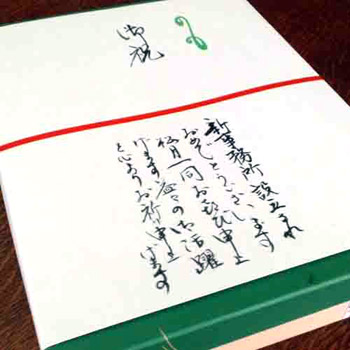 御祝
新事務所設立され
おめでとうございます
役員一同お喜び申し上
げます 益々の御活躍
を心よりお祈り申し上げます